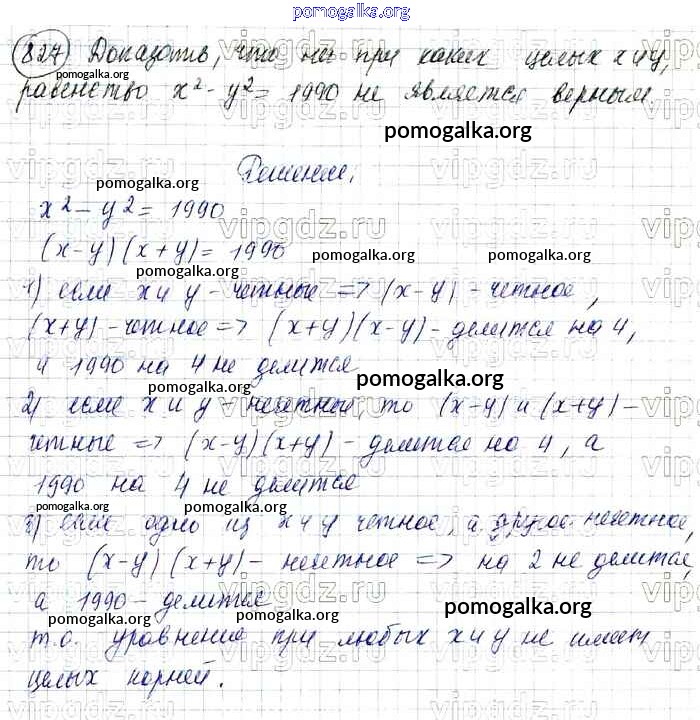 pomogalka.org
827) Доказать, что ни при каких целых x и y,
pomogalka.org
равенство x² - y² = 1990 не является верным.
pomogalka.org
vipgdz.ru
Решение,
pomogalka.org
x² - y² = 1990
vipgdz.ru
(x-y)(x+y) = 1990
pomogalka.org
pomogalka.org
1) если x и y - четные => (x-y) - четное,
vipgdz.ru
(x+y) - четное => (x+y)(x-y) - делится на 4,
и 1990 на 4 не делится
pomogalka.org
pomogalka.org
2) если x и y - нечетные, то (x-y) и (x+y) -
четные => (x-y)(x+y) - делится на 4, а
1990 на 4 не делится
pomogalka.org
pomogalka.org
3) если одно из x и y четное, а другое нечетное,
то (x-y)(x+y) - нечетное => на 2 не делится,
vipgdz.ru
а 1990 - делится
pomogalka.org
т.о. уравнение при любых x и y не имеет
целых корней.
pomogalka.org
vipgdz.ru